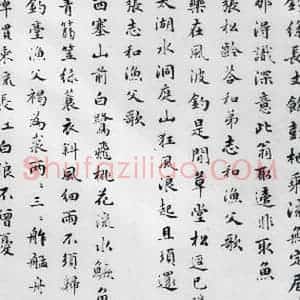 那得識深意此翁取適非取魚
張松齡答和弟志和漁父歌
樂在風波釣是閒草堂松逕已
太湖水洞庭山狂風浪起且須還
張志和漁父歌
西塞山前白鷺飛桃花流水鱖魚
青箬笠綠蓑衣斜風細雨不須歸
釣臺漁父褐為裘兩三:舴艋舟
長江白浪不曾憂
Shufaziliao.com